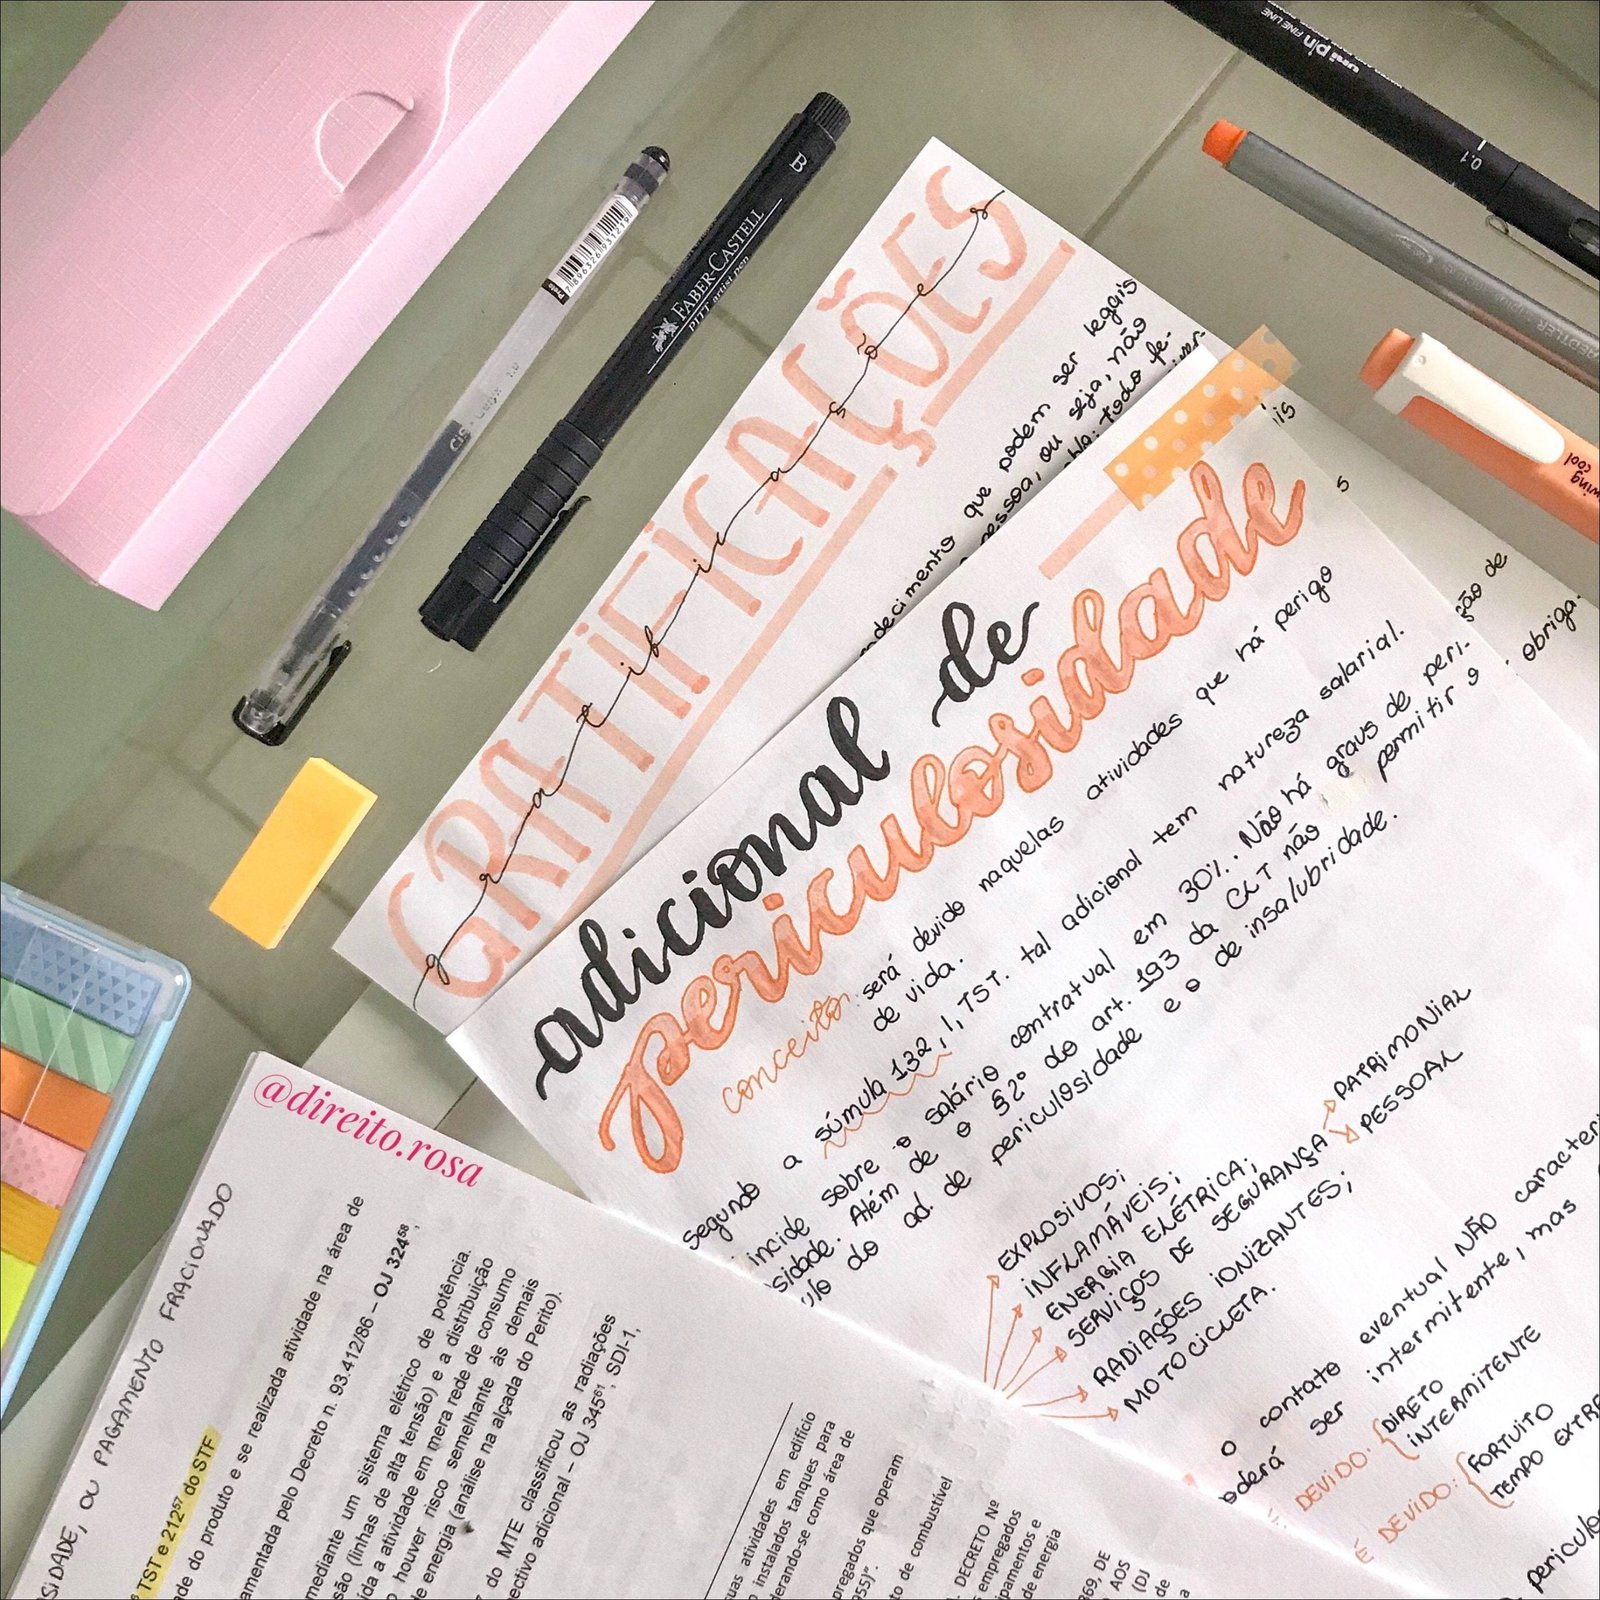 GRATIFICAÇÕES
gratificações
que podem ser legais
pessoa, ou seja, não
todo fe-
adicional de
periculosidade
conceito: será devido naquelas atividades que há perigo
de vida.
Segundo a súmula 132, I, TST. tal adicional tem natureza salarial.
incide sobre o salário contratual em 30%. Não há graus de peri-
sidade. Além de o §2º do art. 193 da CLT não permitir o
ulo do ad. de periculosidade e o de insalubridade.
ção de
obriga-
EXPLOSIVOS;
INFLAMÁVEIS;
ENERGIA ELÉTRICA;
SERVIÇOS DE SEGURANÇA
PATRIMONIAL
PESSOAL
RADIAÇÕES IONIZANTES;
MOTOCICLETA.
O contato eventual NÃO caracteri
poderá ser intermitente, mas
DEVIDO: DIRETO
INTERMITENTE
É DEVIDO: FORTUITO
TEMPO EXTRE
periculos
@direito.rosa
SIDADE, OU PAGAMENTO FRACIONADO
TST e 212⁵⁷ do STF
ade do produto e se realizada atividade na área de
amentada pelo Decreto n. 93.412/86 – OJ 324⁵⁸,
mediante um sistema elétrico de potência.
são (linhas de alta tensão) e a distribuição
ida a atividade em mera rede de consumo
houver risco semelhante às demais
de energia (análise na alçada do Perito).
do MTE classificou as radiações
pectivo adicional – OJ 345⁶¹, SDI-1,
suas atividades em edifício
o instalados tanques para
derando-se como área de
pregados que operam
955)".
to de combustível
DECRETO Nº
empregados
ipamentos e
de energia
369, DE
AOS
(DJ
de
a
FABER-CASTELL
PITT artist pen
B
CiS
1.0
Preto
7896326931219
uni pin
FINE LINE
0.1
STAEDTLER
swing
cool